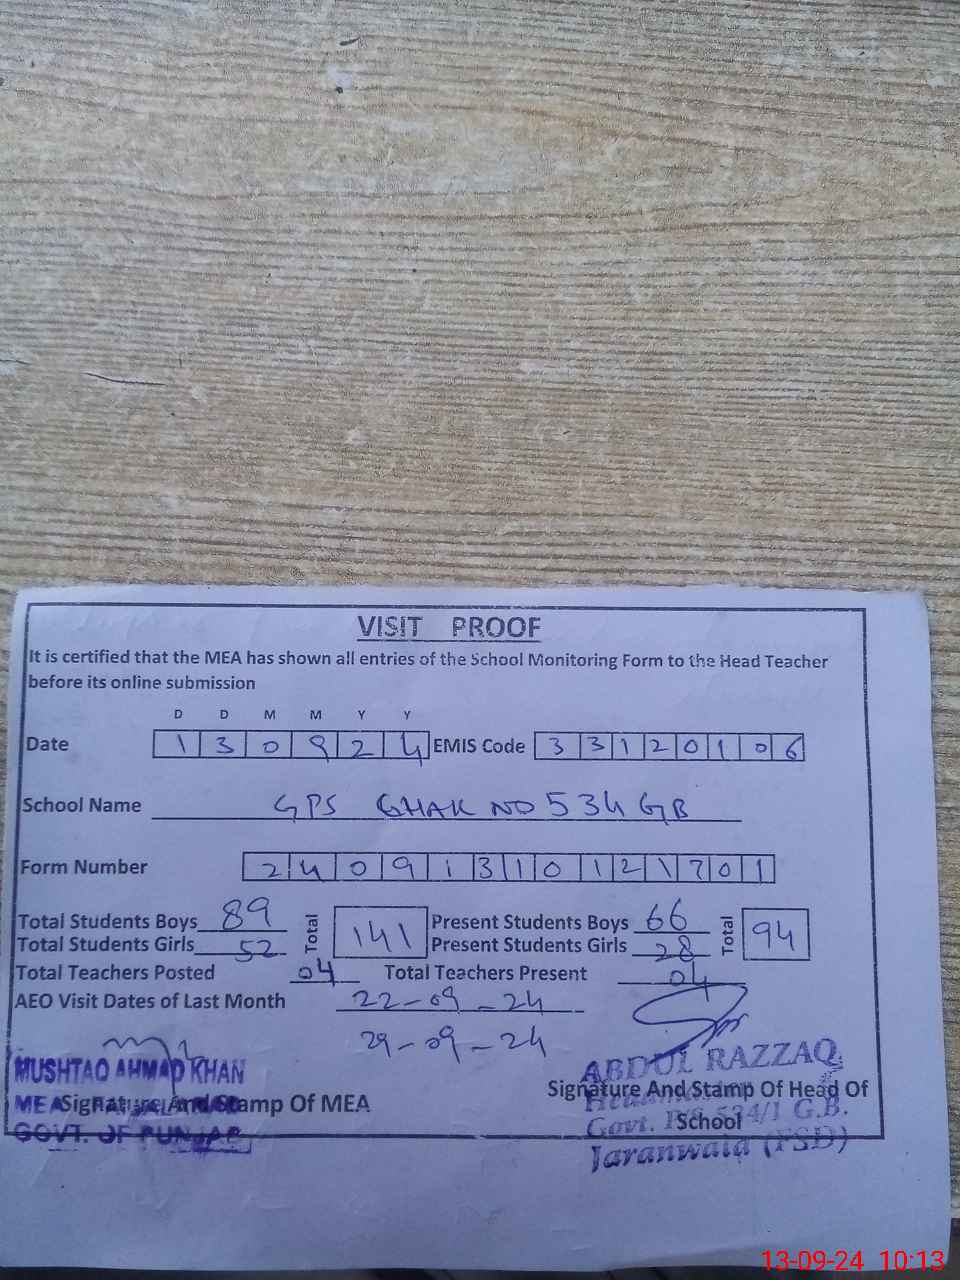 VISIT PROOF
It is certified that the MEA has shown all entries of the School Monitoring Form to the Head Teacher
before its online submission
D D M M Y Y
Date 1 3 0 9 2 4 EMIS Code 3 3 1 2 0 1 0 6
School Name GPS CHAK NO 534 GB
Form Number 2 4 0 9 1 3 1 0 1 2 1 7 0 1
Total Students Boys 89 Total 141 Present Students Boys 66 Total 94
Total Students Girls 52 Present Students Girls 28
Total Teachers Posted 04 Total Teachers Present 04
AEO Visit Dates of Last Month 22-09-24
29-09-24
MUSHTAQ AHMAD KHAN
MEA
GOVT. OF PUNJAB
Signature And Stamp Of MEA
ABDUL RAZZAQ
Signature And Stamp Of Head Of
School
Govt. P/S 534/1 G.B.
Jaranwala (FSD)
13-09-24 10:13